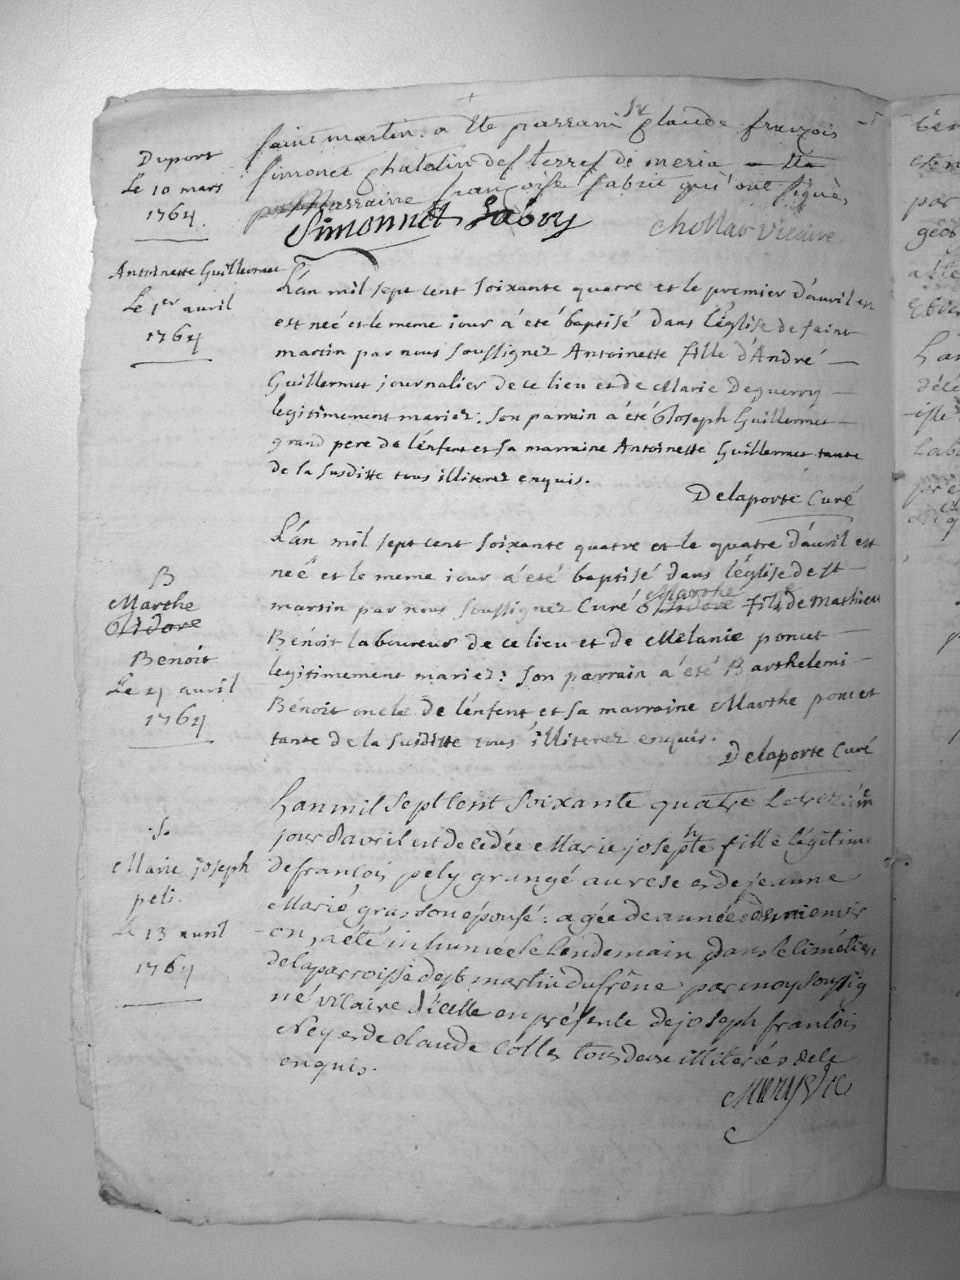 saint martin. a été parrain Sr Claude françois
Duport
Le 10 mars
1764
Simonet Chatelin des terres de meria
Marraine françoise fabri qui ont signés
Simonnet fabry
Chollat Vicaire
Antoinette Guillermet
Le 1er avril
1764
L'án mil sept cent soixante quatre et le premier d'auril
est neé et le meme iour a été baptisé dans l'église de saint
martin par nous soussignez Antoinette fille d'André
Guillermet journalier de ce lieu et de Marie Deguerry
legitimement mariez: son parrain a été Joseph Guillermet
grand pere de l'énfent et sa marraine Antoinette Guillermet tante
de la susditte tous illiterez enquis.
Delaporte Curé
B
Marthe
Benoit
Le 4 avril
1764
L'án mil sept cent soixante quatre et le quatre d'auril est
neé et le meme iour a été baptisé dans l'église de st
Marthe
martin par nous soussignez Curé fille de Mathieu
Bénoit laboureur de ce lieu et de Mélanie poncet
legitimement mariez: son parrain a été Barthelemi
Bénoit oncle de l'énfent et sa marraine Marthe poncet
tante de la susditte tous illiterez enquis.
Delaporte Curé
.S.
Marie joseph
peli.
Le 13 avril
1764
L'an mil sept cent soixante quatre Le
jour d'avril est decedée Marie josephte fille légitime
de francois pely grangé et de jeanne
Marie gras son épousé: agée de
on, a été inhumée le lendemain dans le cimétier
de la parroisse de st martin du frêne par moy soussig
né vicaire d'icelle en présence de joseph francois
Ney et de claude Collet tous deux illiterés de ce
enquis.